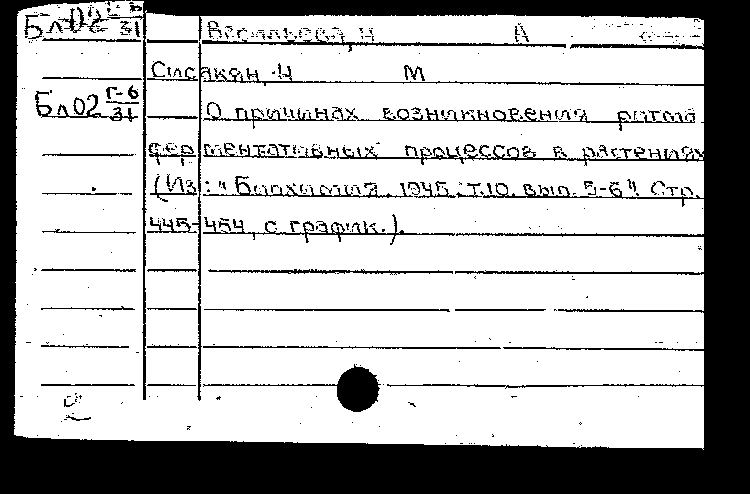 Бл02 Г-6/31 Васильева, Н А
Сисакян, Н М
Бл02 Г-6/31 О причинах возникновения ритма
ферментативных процессов в растениях
(Из: "Биохимия. 1945. т.10. вып. 5-6". Стр.
445-454, с график.).
2